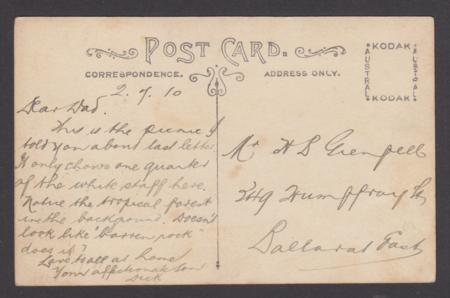 POST CARD.
CORRESPONDENCE.
ADDRESS ONLY.
AUSTRAL
KODAK
AUSTRAL
KODAK
2.7.10
Dear Dad.
This is the picnic I
told you about last letter.
It only shows one quarter
of the white staff here.
Notice the tropical forest
in the background. Doesn't
look like "barren rock"
does it?
Love to all at home
Your affectionate son
Dick
Mr H S Grenfell
Humffray St
Ballarat East